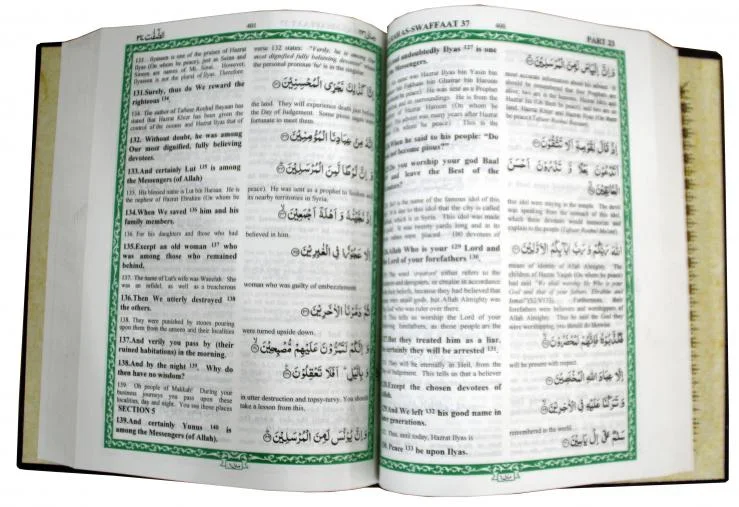 AS-SWAFFAAT 37 400 PART 23
undoubtedly Ilyas 127 is one
Messengers.
وَ اِنَّ اِلْيَاسَ لَمِنَ الْمُرْسَلِيْنَ
was Hazrat Ilyas bin Yasin bin
bin Fakhass bin Ghaizar bin Haroon
He was sent as a Prophet
and its surroundings. He is from the
of Hazrat Haroon (On whom be
advent was many years after Hazrat
(On whom be peace). This is the
most accurate information about his
remembered that four
When he said to his people: "Do
not become pious?"
اِذْ قَالَ لِقَوْمِهٖۤ اَلَا تَتَّقُوْنَ
Do you worship your god Baal
and leave the Best of the
اَتَدْعُوْنَ بَعْلًا وَّ تَذَرُوْنَ اَحْسَنَ
الْخَالِقِيْنَ
is the name of the famous idol of this
to this idol that the city is called
which is in Syria. This idol was made
It was twenty yards long and in its
were placed. 400 devotees of
the idol were staying in the temple. The devil
was speaking from the stomach of this idol,
which these devotees would memorise and
explain to the people (Tafseer Roohul Bayaan).
Allah Who is your 129 Lord and
the Lord of your forefathers 130.
اللّٰهَ رَبَّكُمْ وَ رَبَّ اٰبَآئِكُمُ الْاَوَّلِيْنَ
The word 'creation' either refers to the
and designers, as creator in accordance
beliefs, because they had believed that
small gods, but Allah Almighty was
God who was ruler over them.
tells us worship the Lord of your
forefathers, as those people are the
means of identity of Allah Almighty. The
children of Hazrat Yaqub (On whom be peace)
had said "We shall worship He Who is your
God and that of your fathers, Ibrahim and
Ismail"(S2:V133). Furthermore, their
forefathers were believers and worshippers of
Allah Almighty. Thus he said the God they
were worshipping, you should do likewise.
But they treated him as a liar,
certainly they will be arrested 131.
فَكَذَّبُوْهُ فَاِنَّهُمْ لَمُحْضَرُوْنَ
They will be eternally in Hell, from the
of Judgement. This tells us that a believer
will be present with respect.
128.Except the chosen devotees of
Allah.
اِلَّا عِبَادَ اللّٰهِ الْمُخْلَصِيْنَ
129.And We left 132 his good name in
later generations.
وَ تَرَكْنَا عَلَيْهِ فِي الْاٰخِرِيْنَ
Thus, until today, Hazrat Ilyas is
remembered in the world.
130. Peace 133 be upon Ilyas.
سَلٰمٌ عَلٰۤى اِلْ يَاسِيْنَ
الصّٰفّٰت ٣٧ 401
133. Ilyaseen is one of the praises of Hazrat
Ilyas (On whom be peace), just as Saina and
Sineen are names of Mt. Sinai. However,
Ilyaseen is not the plural of Ilyas. Therefore
verse 132 states: "Verily, he is among Our
most dignified fully believing devotees"
the personal pronoun 'he' is in the singular.
131.Surely, thus do We reward the
righteous 134.
اِنَّا كَذٰلِكَ نَجْزِي الْمُحْسِنِيْنَ
134. The author of Tafseer Roohul Bayaan has
stated that Hazrat Khizr has been given the
control of the oceans and Hazrat Ilyas that of
the land. They will experience death just before
the Day of Judgement. Some pious sages are
fortunate to meet them.
132. Without doubt, he was among
Our most dignified, fully believing
devotees.
اِنَّهٗ مِنْ عِبَادِنَا الْمُؤْمِنِيْنَ
133.And certainly Lut 135 is among
the Messengers (of Allah)
وَ اِنَّ لُوْطًا لَّمِنَ الْمُرْسَلِيْنَ
135. His blessed name is Lut bin Haraan. He is
the nephew of Hazrat Ibrahim (On whom be
peace). He was sent as a prophet to Sodom and
its nearby territories in Syria.
134.When We saved 136 him and his
family members.
اِذْ نَجَّيْنٰهُ وَ اَهْلَهٗۤ اَجْمَعِيْنَ
136. For his daughters and those who had
believed in him.
135.Except an old woman 137 who
was among those who remained
behind.
اِلَّا عَجُوْزًا فِي الْغٰبِرِيْنَ
137. The name of Lut's wife was Waeelah. She
was an infidel, as well as a treacherous
woman who was guilty of embezzlement.
136.Then We utterly destroyed 138
the others.
ثُمَّ دَمَّرْنَا الْاٰخَرِيْنَ
138. They were punished by stones pouring
upon them from the unseen and their localities
were turned upside down.
137.And verily you pass by (their
ruined habitations) in the morning.
وَ اِنَّكُمْ لَتَمُرُّوْنَ عَلَيْهِمْ مُّصْبِحِيْنَ
138.And by the night 139. Why do
then have no wisdom?
وَ بِالَّيْلِ اَفَلَا تَعْقِلُوْنَ
139. Oh people of Makkah! During your
business journeys you pass upon these
localities, day and night. You see those places
in utter destruction and topsy-turvy. You should
take a lesson from this.
SECTION 5
139.And certainly Yunus 140 is
among the Messengers (of Allah).
وَ اِنَّ يُوْنُسَ لَمِنَ الْمُرْسَلِيْنَ